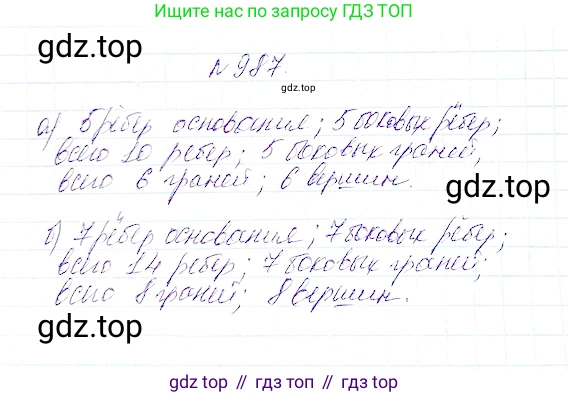 Ищите нас по запросу ГДЗ ТОП
gdz.top
№ 987.
gdz.top
а) 5 рёбер основания; 5 боковых рёбер;
всего 10 ребер; 5 боковых граней,
всего 6 граней; 6 вершин.
gdz.top
б) 7 рёбер основания; 7 боковых рёбер;
всего 14 ребер; 7 боковых граней;
всего 8 граней; 8 вершин.
gdz.top
gdz.top // гдз топ // gdz.top